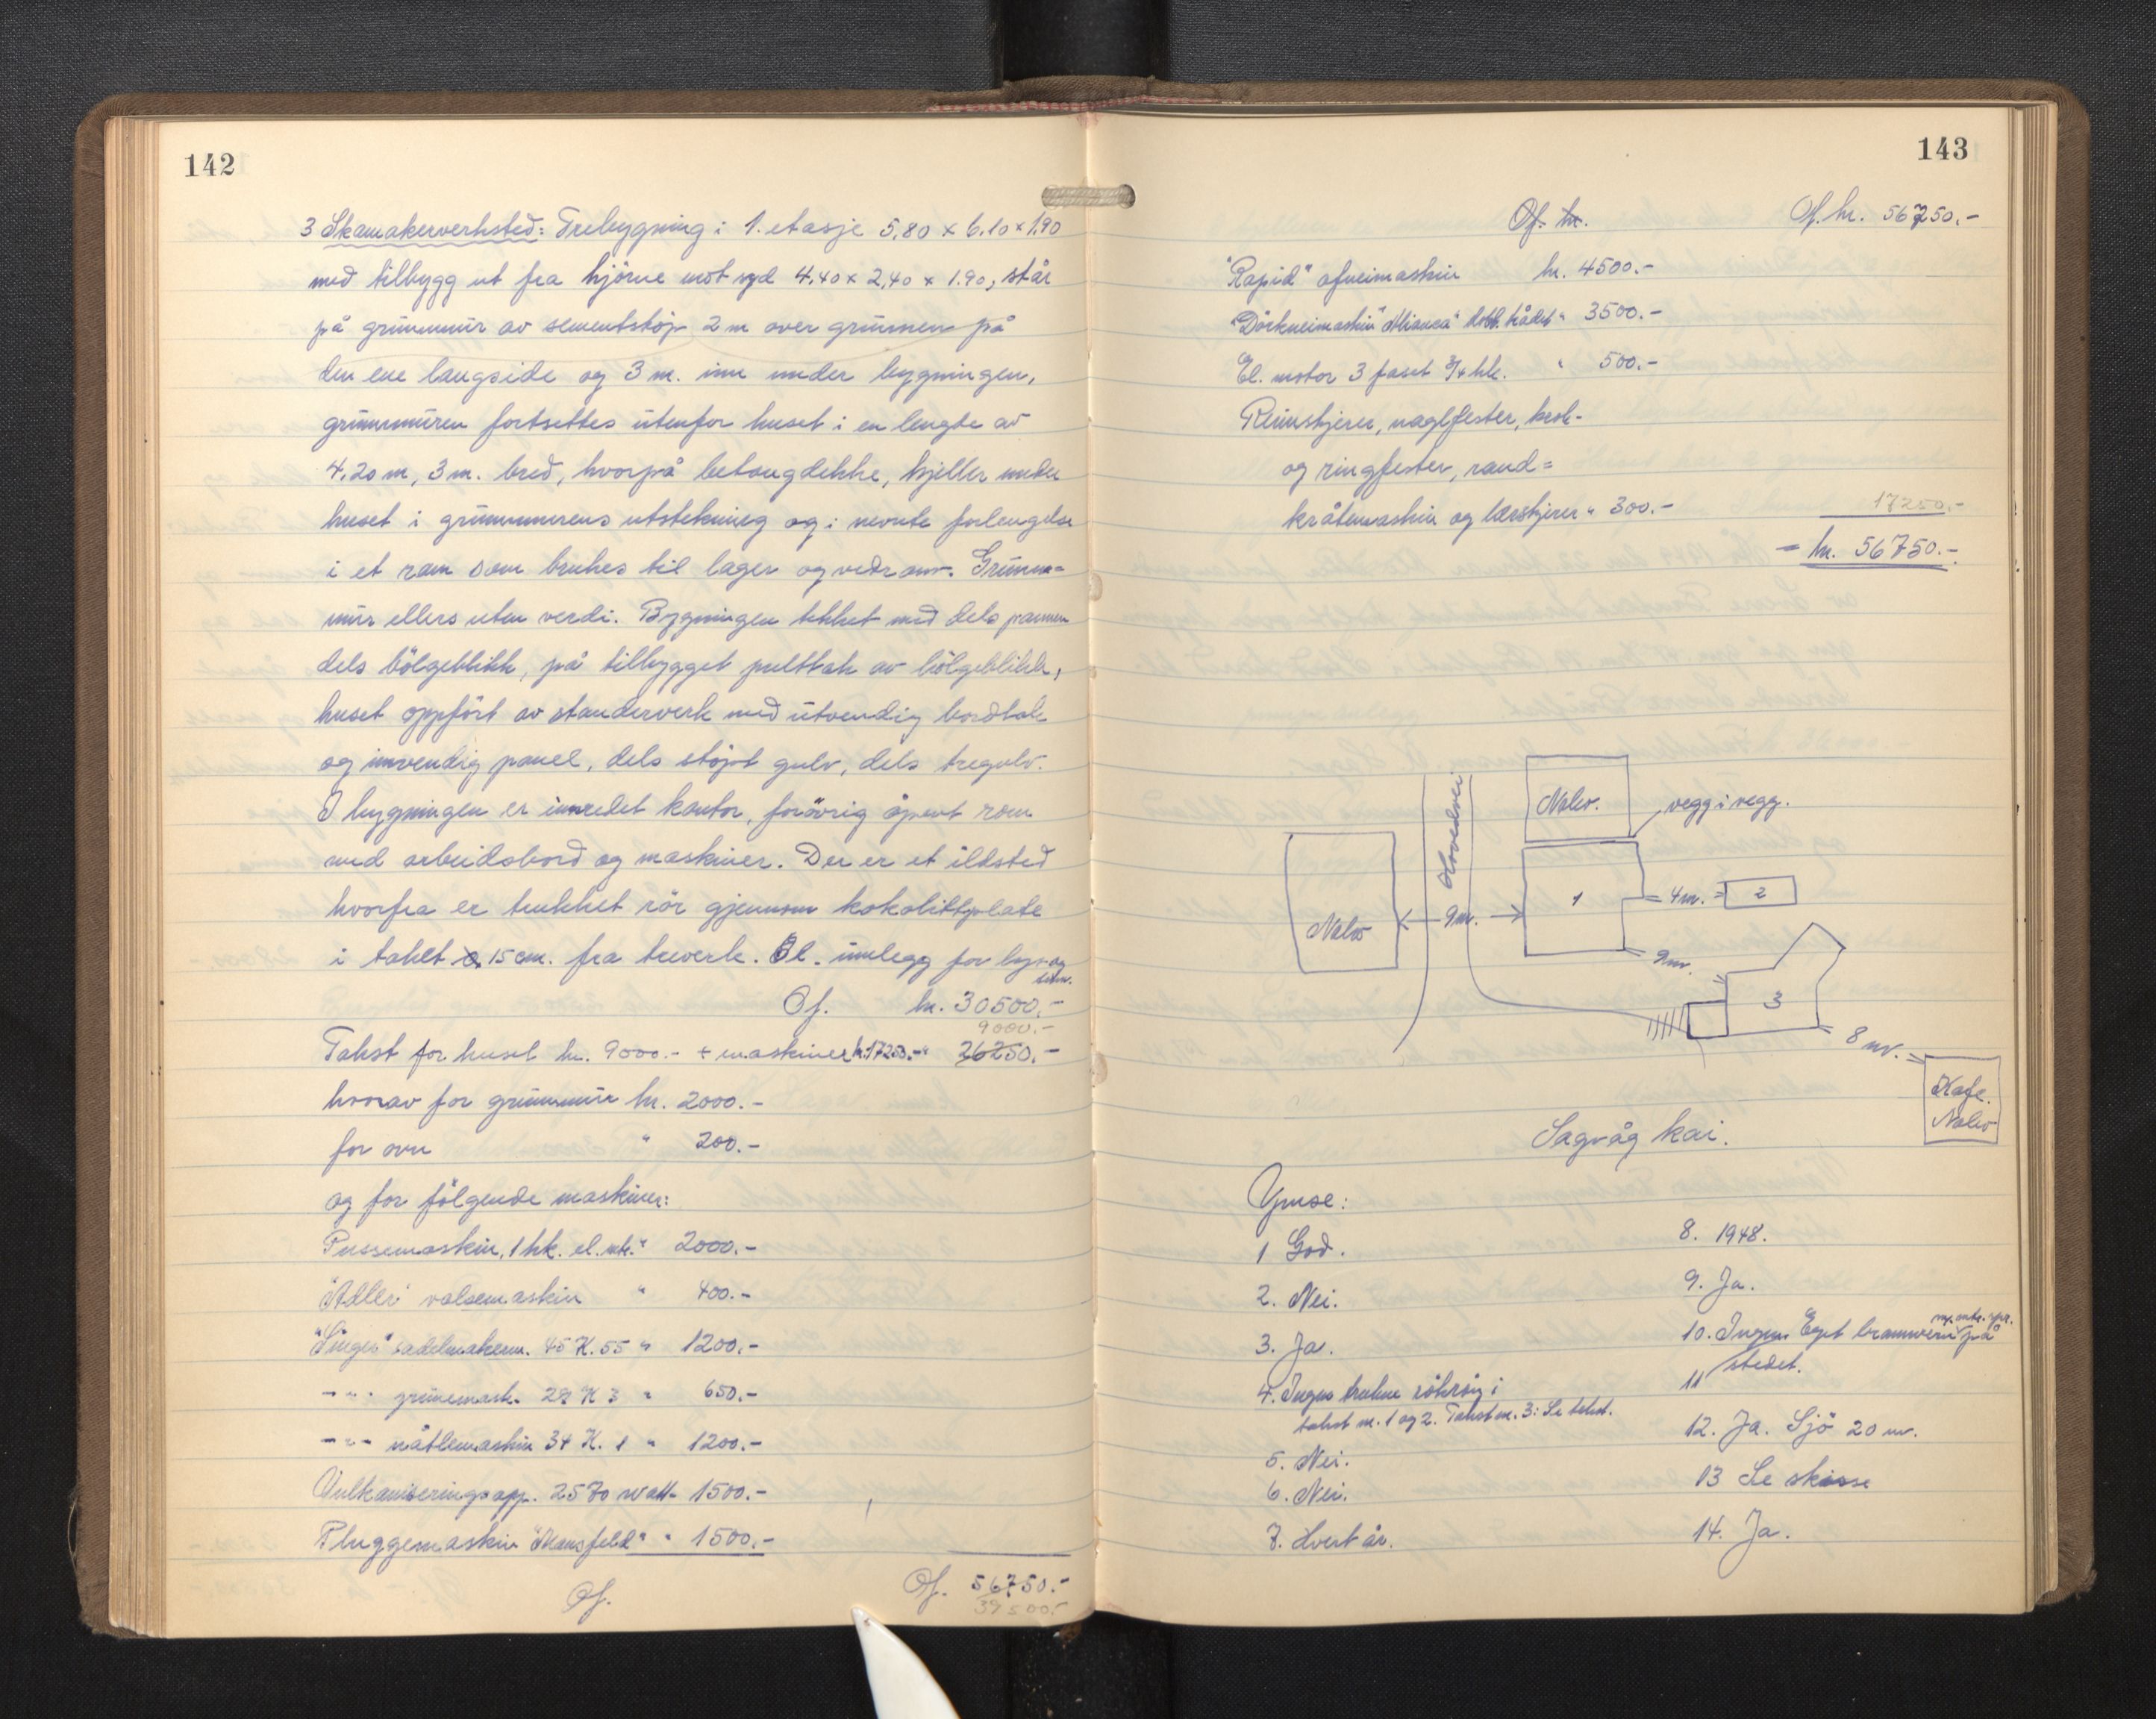 142
3 Skomakerverksted: Trebygning i 1. etasje 5,80 x 6,10 x 1,90
med tilbygg ut fra hjörne mot syd 4,40 x 2,40 x 1.90, står
på grunnmur av sementstöp 2 m over grunnen på
den ene langside og 3 m. inn under bygningen,
grunnmuren fortsettes utenfor huset i en lengde av
4,20 m, 3 m. bred, hvorpå betongdekke, kjeller under
huset i grunnmurens utstekning og i nevnte forlengelse
i et rom som brukes til lager og vedrom. Grunn=
mur ellers uten verdi. Bygningen tekket med dels pannen
dels bölgeblikk, på tilbygget pulttak av bölgeblikk,
huset oppfört av standerverk med utvendig bordtak
og innvendig panel, dels stöpt gulv, dels tregulv.
I bygningen er innredet kontor, forövrig åpent rom
med arbeidsbord og maskiner. Der er et ildsted
hvorfra er trukket rör gjennom kokolittplate
i taket 15 cm. fra treverk. El. innlegg for lys og
Of. kr. 30500.-
9000.-
Takst for huset kr. 9000.- + maskiner kr. 17250.- " 26250.-
hvorav for grunnmur kr. 2000.-
for ovn " 200.-
og for fölgende maskiner:
Pussemaskin, 1 hk. el. mtr. " 2000.-
"Adler" valsemaskin " 400.-
"Singer" sadelmakerm. 45 K. 55 " 1200.-
- " - mask. 29 K 3 " 650.-
- " - nåtlemaskin 34 K. 1 " 1200.-
Vulkaniseringsapp. 2570 watt 1500.-
Pluggemaskin "Mansfeld" " 1500.-
Of. Of. 56750.-
39500.-
143
Of. kr. Of. kr. 56750.-
"Rapid" maskin kr. 4500.-
"Dörkneimaskin" dobb. trådet " 3500.-
El. motor 3 faset 3/4 hk. " 500.-
Remskjerer, naglfester, krok-
og ringfester, rand=
maskin og lærskjerer " 300.-
17250.-
= kr. 56750.-
Nabo.
vegg i vegg.
Hovedvei
Nabo
9m.
1
4m.
2
9m.
3
8 m.
Kafe.
Nabo
Sagvåg kai.
Ymse:
1 God.
2. Nei.
3. Ja.
4. Ingen trukne rökrör i
takst nr. 1 og 2. Takst nr. 3: Se tekst.
5. Nei.
6. Nei.
7. Hvert år.
8. 1948.
9. Ja.
10. Ingen Eget brannvern på
11 stedet.
12. Ja. Sjö 20 m.
13 Se skisse
14. Ja.